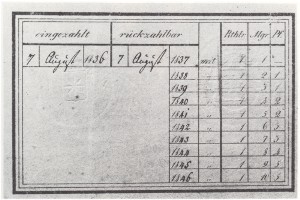 eingezahlt rückzahlbar Rthlr Mgr Pf.
7 August 1836 7 August 1837 mit 1
1838 " 2 1
1839 " 3 1
1840 " 4 2
1841 " 5 2
1842 " 6 3
1843 " 7 3
1844 " 8 4
1845 " 9 5
1846 " 10 5